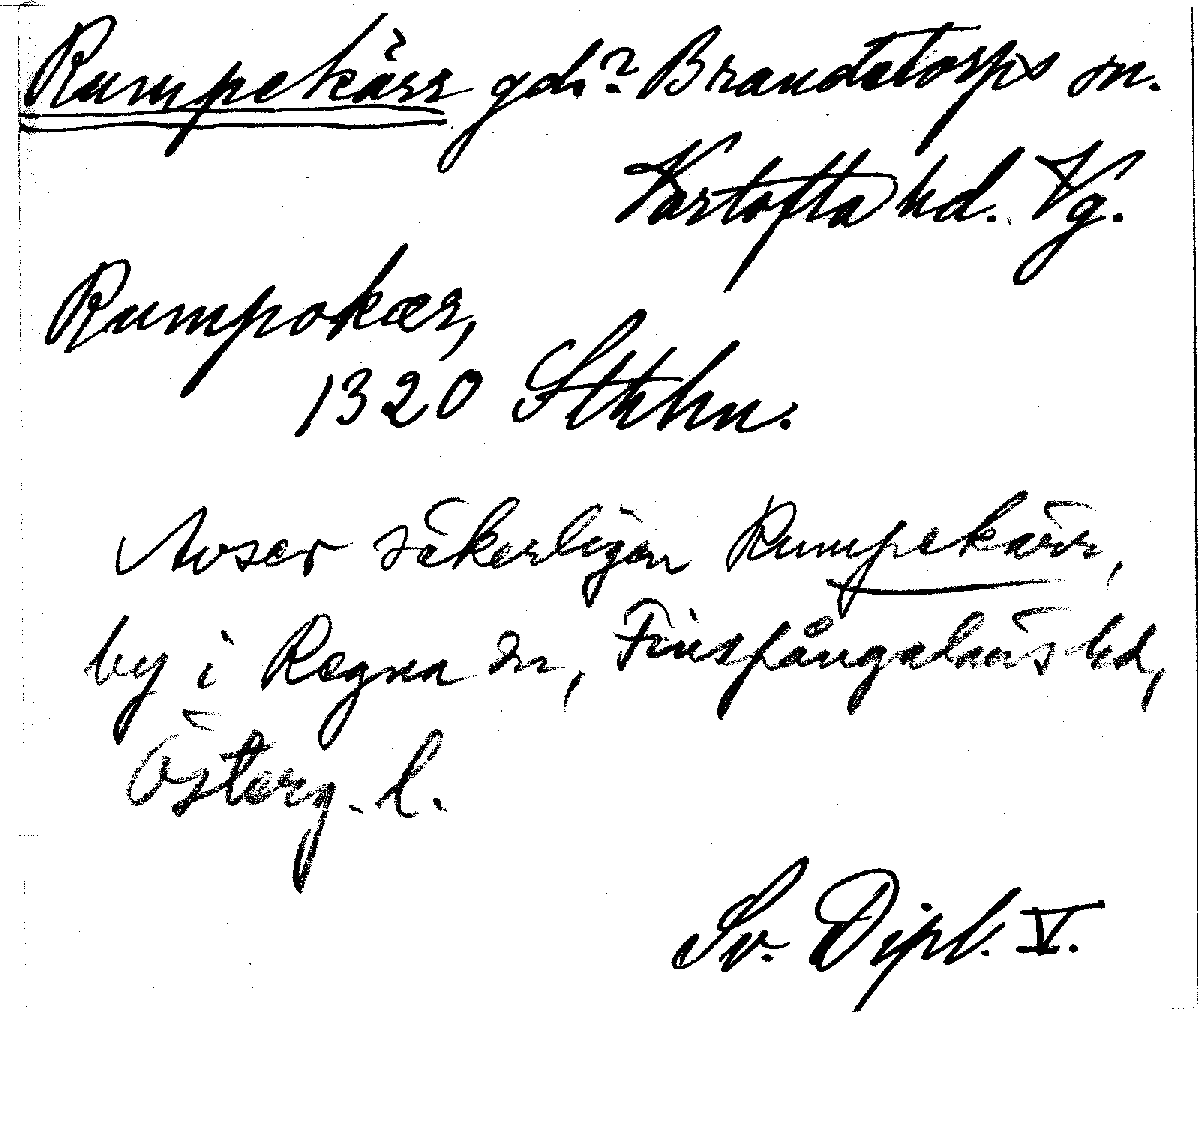 Rumpekärr gd.? Brandstorps sn.
Vartofta hd. Vg.
Rumpokær,
1320 Sthhn.
Avser säkerligen Rumpekärr,
by i Regna sn, Finspångaläns hd,
Österg. l.
Sv. Dipl. V.